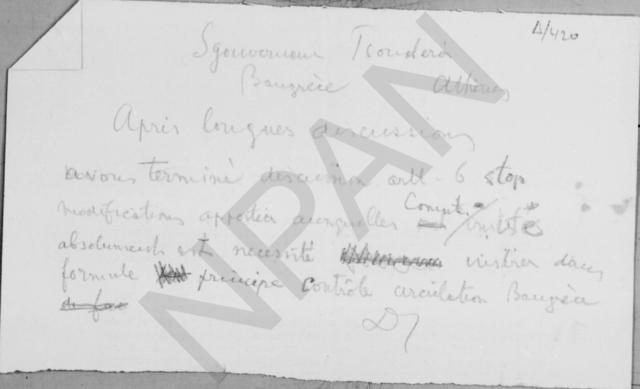 Δ/420
Sgouverneur Tsouderos
Bangrèce Athènes
Après longues discussions
avons terminé discussion art - 6 stop
modifications apportées auxquelles Comité insisté
absolument est nécessité insérer dans
formule principe contrôle circulation Bangrèce
NPAN